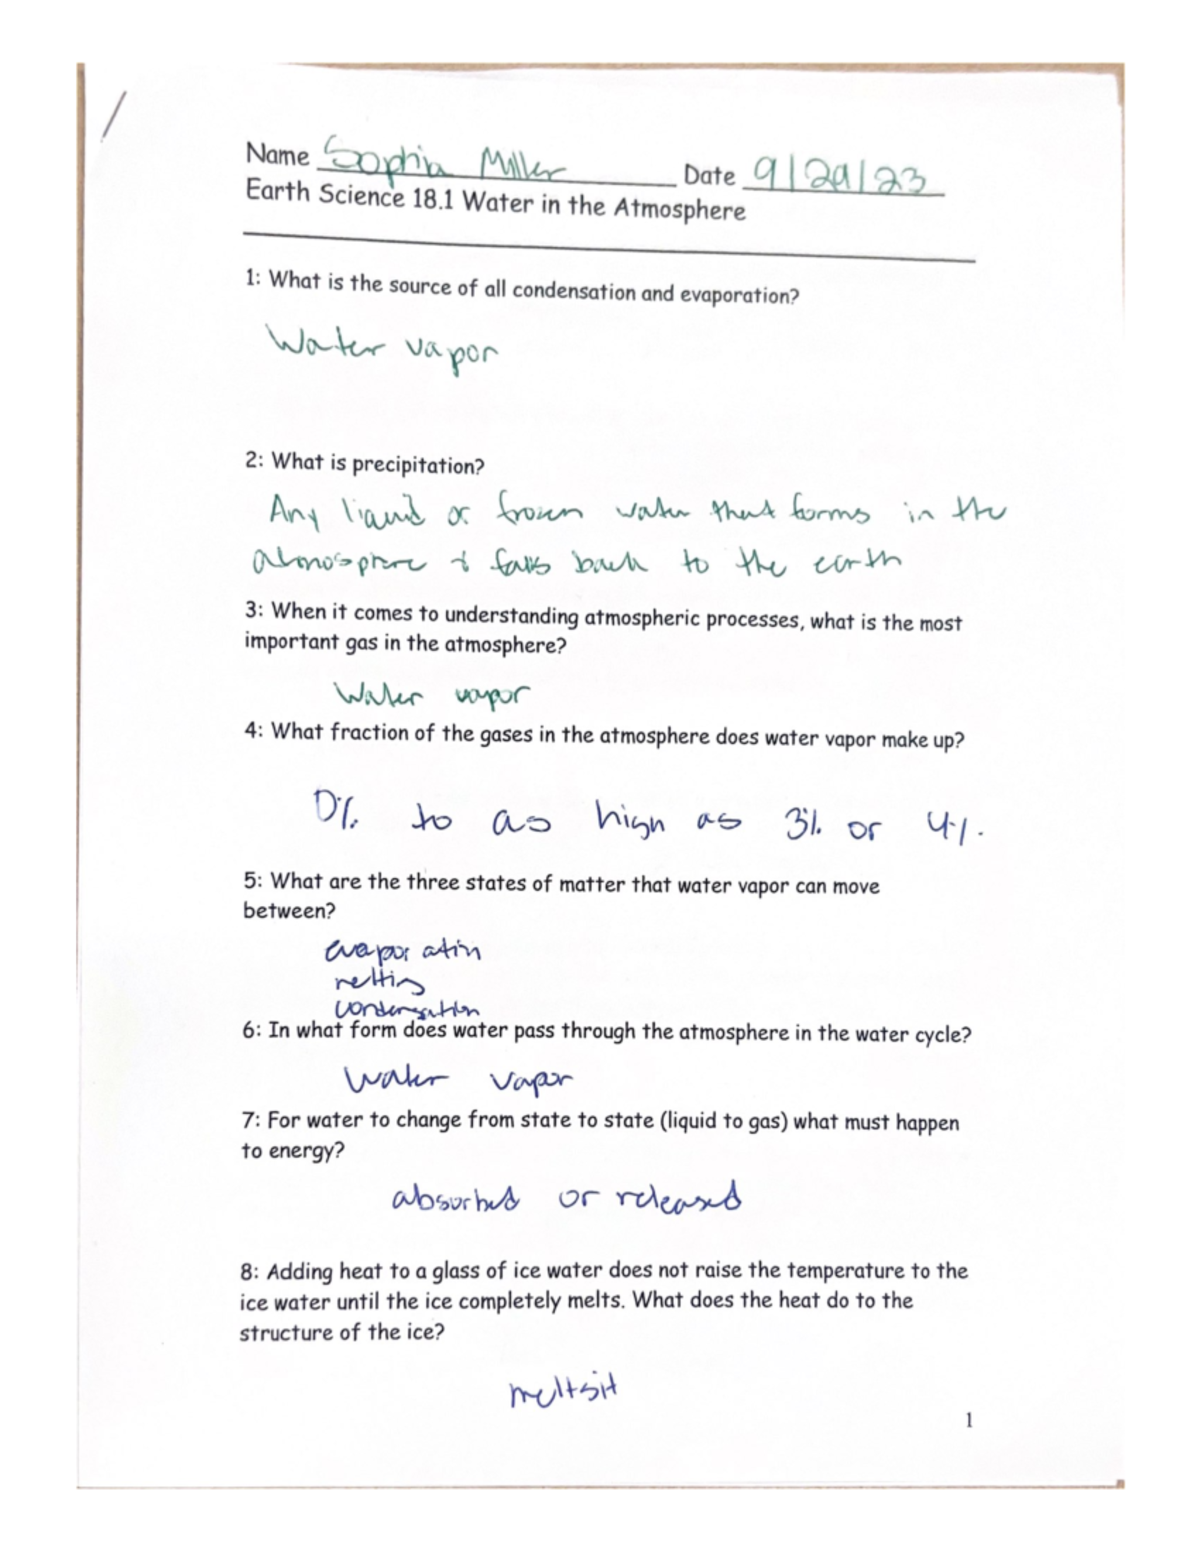 Name Sophia Miller Date 9/29/23
Earth Science 18.1 Water in the Atmosphere
1: What is the source of all condensation and evaporation?
Water vapor
2: What is precipitation?
Any liquid or frozen water that forms in the
atmosphere & falls back to the earth
3: When it comes to understanding atmospheric processes, what is the most
important gas in the atmosphere?
Water vapor
4: What fraction of the gases in the atmosphere does water vapor make up?
0% to as high as 3% or 4%.
5: What are the three states of matter that water vapor can move
between?
evaporation
melting
condensation
6: In what form does water pass through the atmosphere in the water cycle?
water vapor
7: For water to change from state to state (liquid to gas) what must happen
to energy?
absorbed or released
8: Adding heat to a glass of ice water does not raise the temperature to the
ice water until the ice completely melts. What does the heat do to the
structure of the ice?
melts it
1